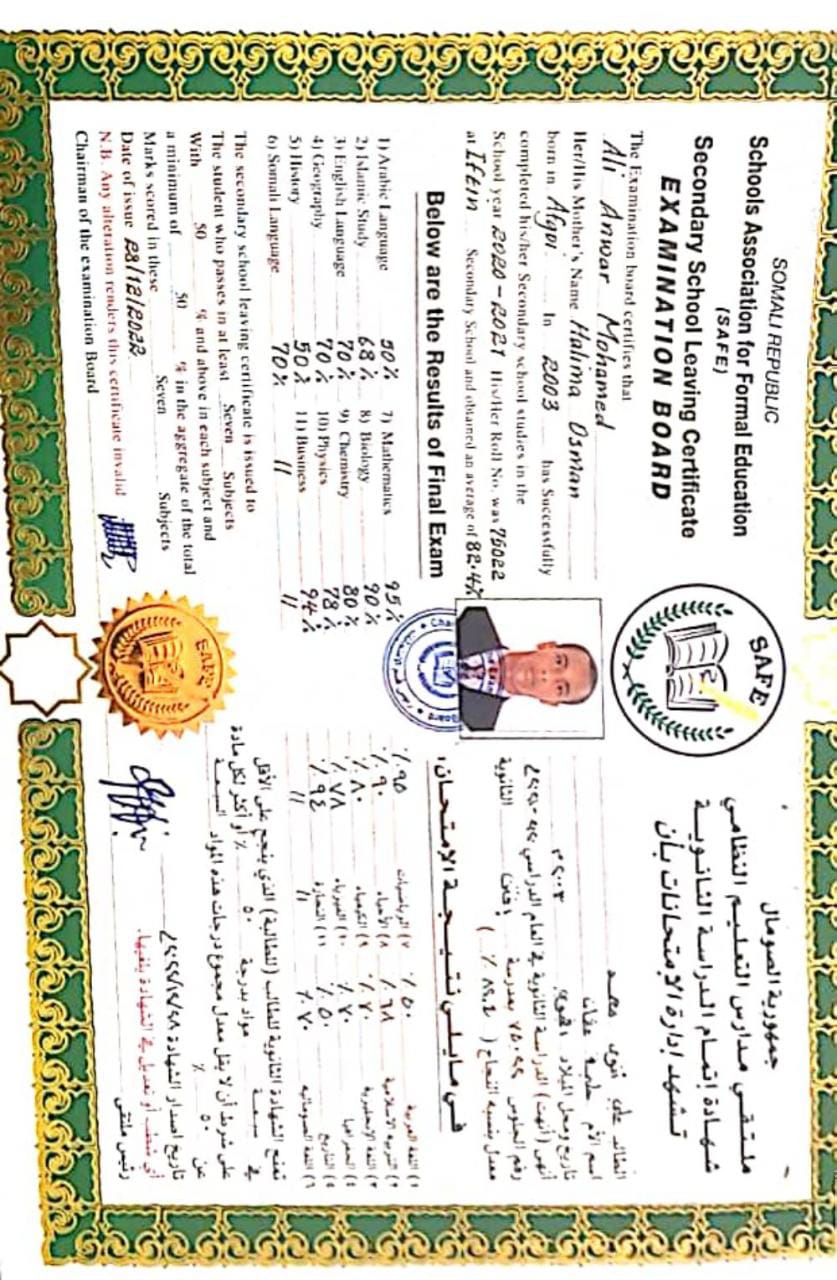 SOMALI REPUBLIC
Schools Association for Formal Education
(SAFE)
Secondary School Leaving Certificate
EXAMINATION BOARD
The Examination board certifies that
Ali Anwar Mohamed
Her/His Mother's Name Halima Osman
born in Afgoi In 2003 has Successfully
completed his/her Secondary school studies in the
School year 2020-2021 His/Her Roll No. was 75022
at Iftin Secondary School and obtained an average of 82.4%
Below are the Results of Final Exam
1) Arabic Language 50% 7) Mathematics 95%
2) Islamic Study 68% 8) Biology 90%
3) English Language 70% 9) Chemistry 80%
4) Geography 70% 10) Physics 78%
5) History 50% 11) Business 94%
6) Somali Language 70% 11 11
The secondary school leaving certificate is issued to
The student who passes in at least Seven Subjects
With 50 % and above in each subject and
a minimum of 50 % in the aggregate of the total
Marks scored in these Seven Subjects
Date of issue 28/12/2022
N.B. Any alteration renders this certificate invalid
Chairman of the examination Board
SAFE
SAFE
جمهورية الصومال
ملتقي مدارس التعليم النظامي
شهادة إتمام الدراسة الثانوية
تشهد إدارة الإمتحانات بأن
محمد
اسم الأم حليمة عثمان
تاريخ ومحل الميلاد ٢٠٠٣م
أنهى (أنهت) الدراسة الثانوية في العام الدراسي
رقم الجلوس ٧٥٠٢٢ بمدرسة الثانوية
معدل بنسبة النجاح ( ٨٢.٤ ٪ )
في مايلي نتيجة الإمتحان:
١) اللغة العربية ٥٠٪ ٧) الرياضيات ٩٥٪
٢) التربية الاسلامية ٦٨٪ ٨) الأحياء ٩٠٪
٣) اللغة الإنجليزية ٧٠٪ ٩) الكيمياء ٨٠٪
٤) الجغرافيا ٧٠٪ ١٠) الفيزياء ٧٨٪
٥) التاريخ ٥٠٪ ١١) التجارة ٩٤٪
٦) اللغة الصومالية ٧٠٪ 11 11
تمنح الشهادة الثانوية للطالب (للطالبة) الذي ينجح على الأقل
في سبعة مواد بدرجة ٥٠ ٪ أو أكثر لكل مادة
على شرط أن لا يقل معدل مجموع درجات هذه المواد السبعة
عن ٥٠ ٪
تاريخ اصدار الشهادة ٢٨/١٢/٢٠٢٢
أي شطب أو تعديل في الشهادة يلغيها.
رئيس ملتقى